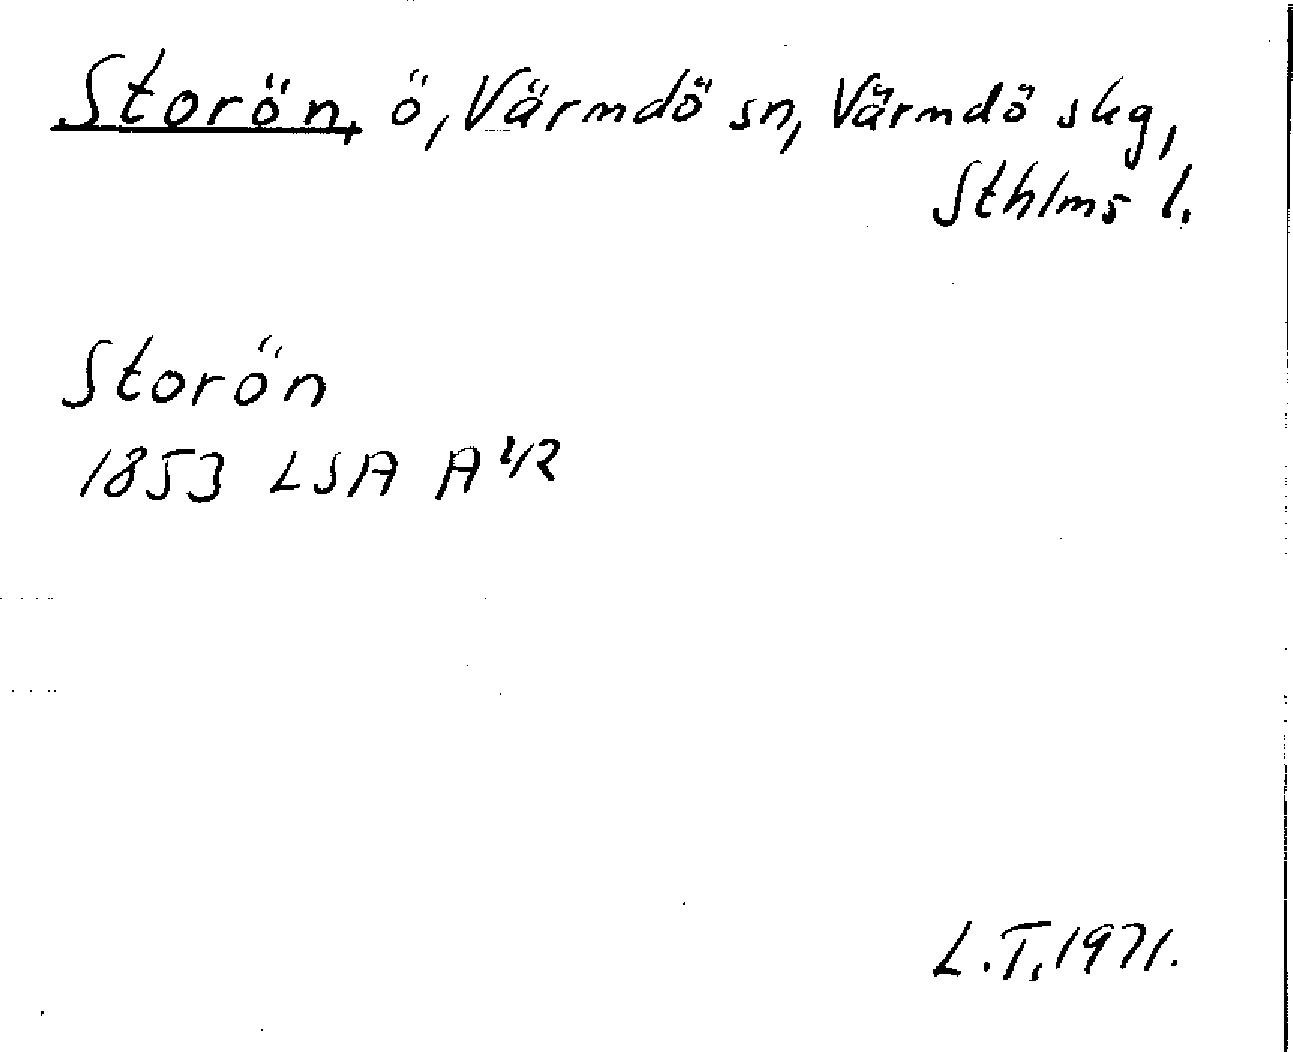 Storön, ö, Värmdö sn, Värmdö skg,
Sthlms l.
Storön
1853 LSA A 1/2
L.T. 1971.